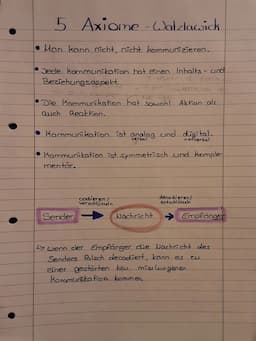 5 Axiome - Watzlawick
• Man kann nicht, nicht kommunizieren.
• Jede Kommunikation hat einen Inhalts- und
Beziehungsaspekt.
• Die Kommunikation hat sowohl Aktion als
auch Reaktion.
• Kommunikation ist analog und digital.
verbal
• Kommunikation ist symmetrisch und komple-
mentär.
codieren/ verschlüsseln
decodieren/ entschlüsseln
Sender → Nachricht → Empfänger
↳ Wenn der Empfänger die Nachricht des
Senders falsch decodiert, kann es zu
einer gestörten bzw. misslungenen
Kommunikation kommen.